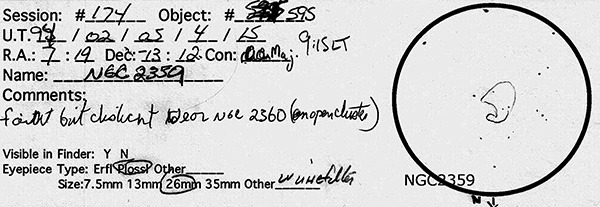 Session: #174 Object: # 595
U.T. 94 / 02 / 05 / 4 / 15 9:15 ET
R.A.: 7 : 19 Dec: -13 : 12 Con: Maj.
Name: NGC 2359
Comments:
faint but distinct near NGC 2360 (an open cluster)
Visible in Finder: Y N
Eyepiece Type: Erfl Plossl Other
Size: 7.5mm 13mm 26mm 35mm Other
NGC2359
N